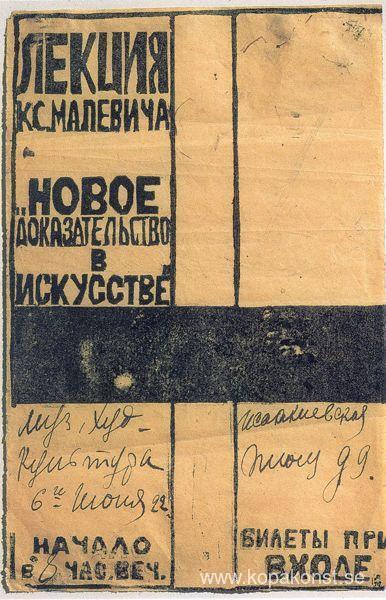 ЛЕКЦИЯ
К.С. МАЛЕВИЧА
„НОВОЕ
ДОКАЗАТЕЛЬСТВО
В
ИСКУССТВЕ"
Муз. Худ-
Культура
6го Июня 22
НАЧАЛО
В 8 ЧАС. ВЕЧ.
Исаакиевская
площ 99.
БИЛЕТЫ ПРИ
ВХОДЕ.
www.kopakonst.se